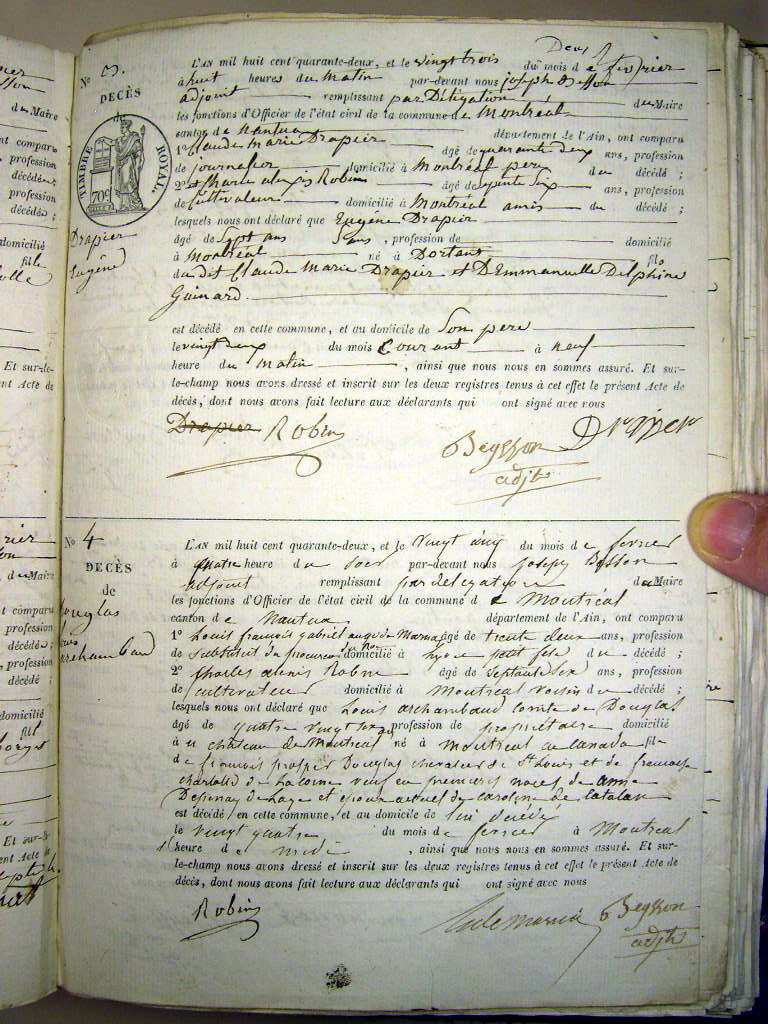 No 3.
DÉCÈS
de
TIMBRE ROYAL.
70c
Drapier
Eugéné
L'AN mil huit cent quarante-deux, et le vingt trois du mois de février
à huit heures du matin par-devant nous joseph Besson
adjoint remplissant par Délégation du Maire
les fonctions d'Officier de l'état civil de la commune de Montréal
canton de Nantua département de l'Ain, ont comparu
1o Claude Marie Drapier âgé de quarante deux ans, profession
de journalier domicilié à Montréal pere du décédé ;
2o Marie alexis Robin âgé de ans, profession
de Cultivateur domicilié à Montréal amis du décédé ;
lesquels nous ont déclaré que Eugène Drapier
âgé de Sept ans , profession de domicilié
à Montréal né à Dortan fils
du dit Claude Marie Drapier et D'Emmanuelle Delphine
Guinard
est décédé en cette commune, et au domicile de Son pere
le vingt deux du mois Courant à neuf
heure du Matin , ainsi que nous nous en sommes assuré. Et sur-
le-champ nous avons dressé et inscrit sur les deux registres tenus à cet effet le présent Acte de
décès, dont nous avons fait lecture aux déclarants qui ont signé avec nous
Drapier Robin
Beysson Drapier
adjt
No 4
DÉCÈS
de
Douglas
Louis
archambaud
L'AN mil huit cent quarante-deux, et le vingt cinq du mois de fevrier
à quatre heure du soir par-devant nous joseph Besson
adjoint remplissant par delegation du Maire
les fonctions d'Officier de l'état civil de la commune de Montréal
canton de Nantua département de l'Ain, ont comparu
1o Louis françois gabriel auguste âgé de trente deux ans, profession
de Substitut du procureur du Roi domicilié à Lyon petit fils du décédé ;
2o Charles alexis Robin âgé de Septante Six ans, profession
de cultivateur domicilié à Montréal voisin du décédé ;
lesquels nous ont déclaré que Louis archambaud Comte de Douglas
âgé de quatre vingt profession de propriétaire domicilié
à u chateau de Montreal né à Montreal en Canada fils
de francois prosper Douglas chevalier de St Louis et de francoise
charlotte de Lacorne veuf en premieres noces de anne
Despinay de Laye et epoux actuel de caroline de Catalan
est décédé en cette commune, et au domicile de lui decédé
le vingt quatre du mois de fevrier à Montreal
heure de midi , ainsi que nous nous en sommes assuré. Et sur-
le-champ nous avons dressé et inscrit sur les deux registres tenus à cet effet le présent Acte de
décès, dont nous avons fait lecture aux déclarants qui ont signé avec nous
Robin Beysson
adjt